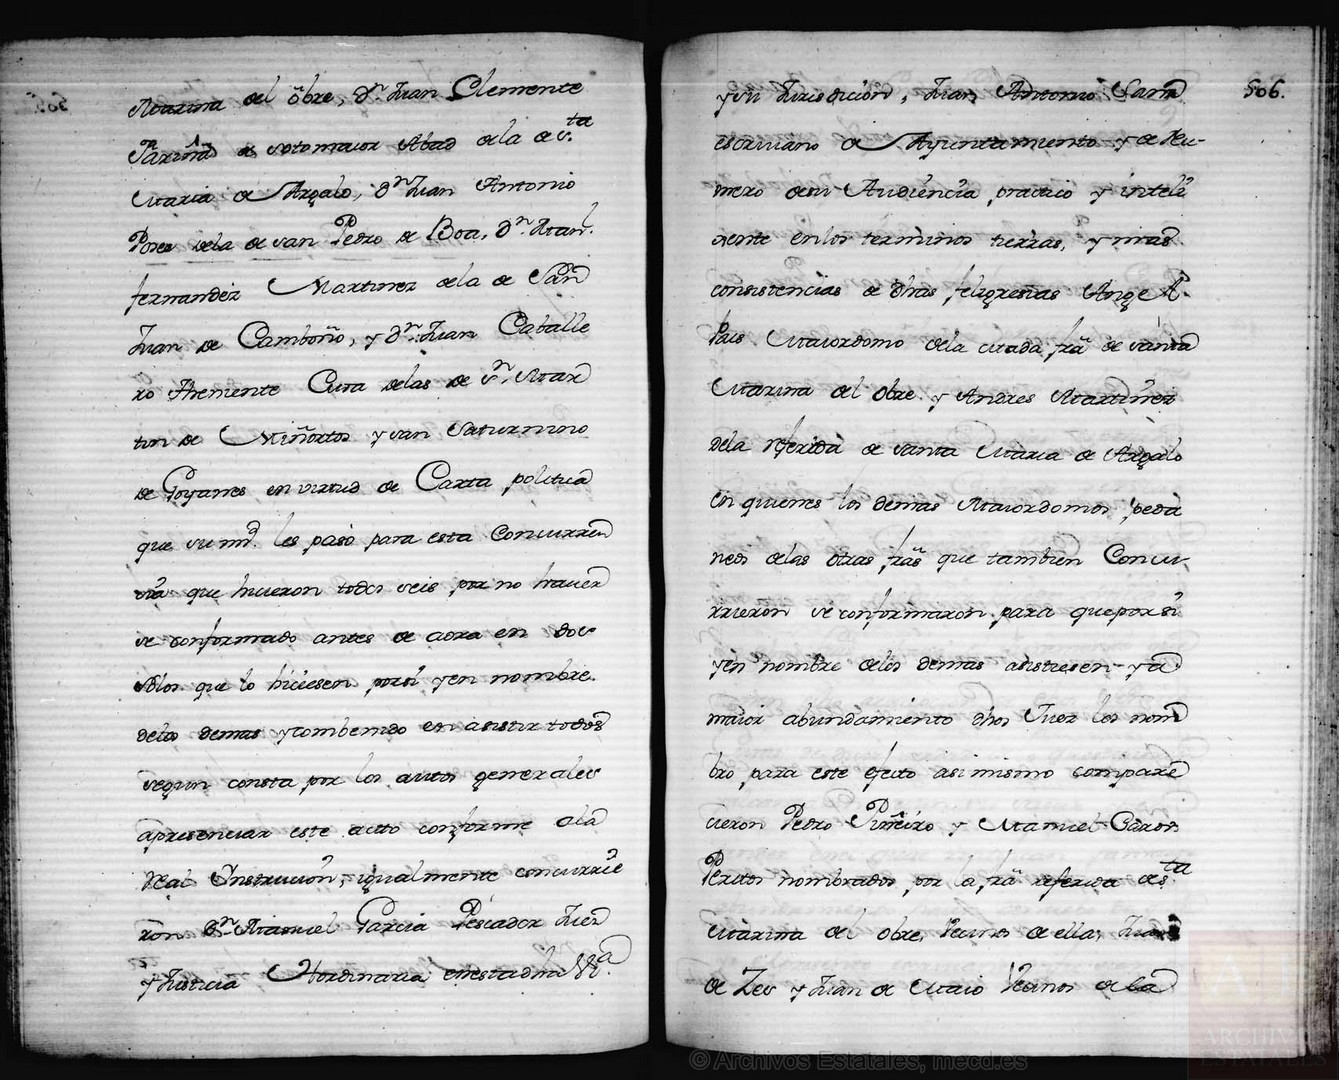 Marina del obre, Dn. Juan Clemente
Fariña de sotomaior Abad dela de Sta
Maria de Argalo, Dn Juan Antonio
Posea dela de san Pedro de Boa, Dn. Manl.
fernandez Martinez dela de San
Juan de Camboño, y Dn. Juan Caballe
ro Theniente Cura delas de Sn. Mar
tin de Miñortos y san Saturnino
de Goyanes en virtud de Carta politica
que su md. les pasó para esta Concurren
zia que hicieron todos seis por no haver
se conformado antes de aora en dos
solos que lo hiciesen porsi yen nombre
delos demas y combenido en asistir todos
segun consta por los autos generales
apresenciar este acto conforme ala
Real Instrución, igualmente concurrie
ron Dn. Manuel Garcia Pescador Juez
y Justicia Hordinaria enestadha Va.
ysu Jurisdición, Juan Antonio
escrivano de Ayuntamiento y de Nu-
mero desu Audiencia practico y inteli
gente enlos terminos tierras, y mas
consistencias de dhas feligresias Ange A.
Pais Maiordomo dela citada fra de santa
Marina del Obre y Andres Martinez
dela referida de santa Maria de Argalo
en quienes los demas Maiordomos peda
neos delas otras fras que tambien Concu-
rrieron se conformaron para queporsi
yen nombre delos demas asistiesen y a
maior abundamiento dhos Juez los nom
bro para este efecto asimismo compare
cieron Pedro Piñeiro y Manuel
Peritos nombrados por la fra referida de Sta
Marina del obre, Vecinos de ella, Juan
de Zes y Juan de Maio Vecinos de la
506.
© Archivos Estatales, mecd.es
ARCHIVOS
ESTATALES